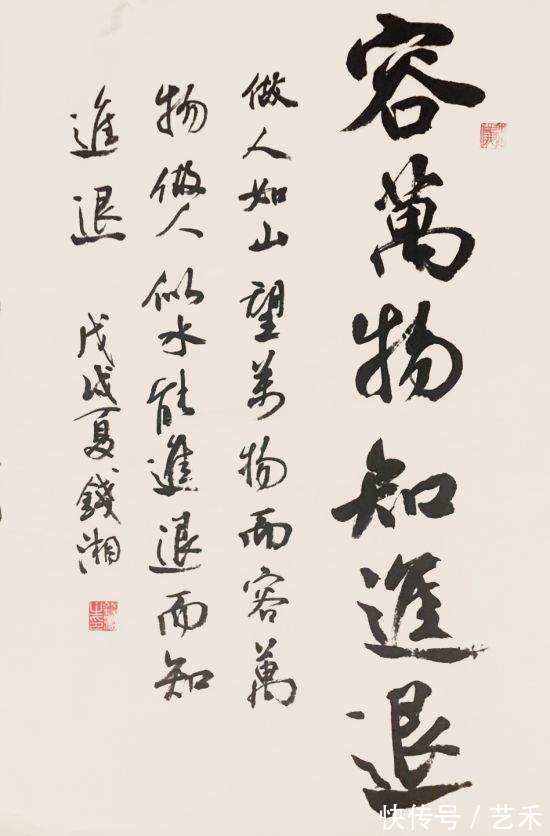 容萬物知進退
做人如山望萬物而容萬
物做人似水能進退而知
進退
戊戌夏錢湘
快传号／艺禾